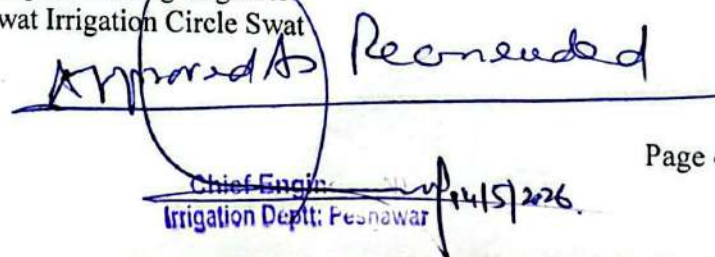 wat Irrigation Circle Swat
Approved As Recomended
Page
Chief Engin
Irrigation Deptt: Peshawar
14/5/2026.